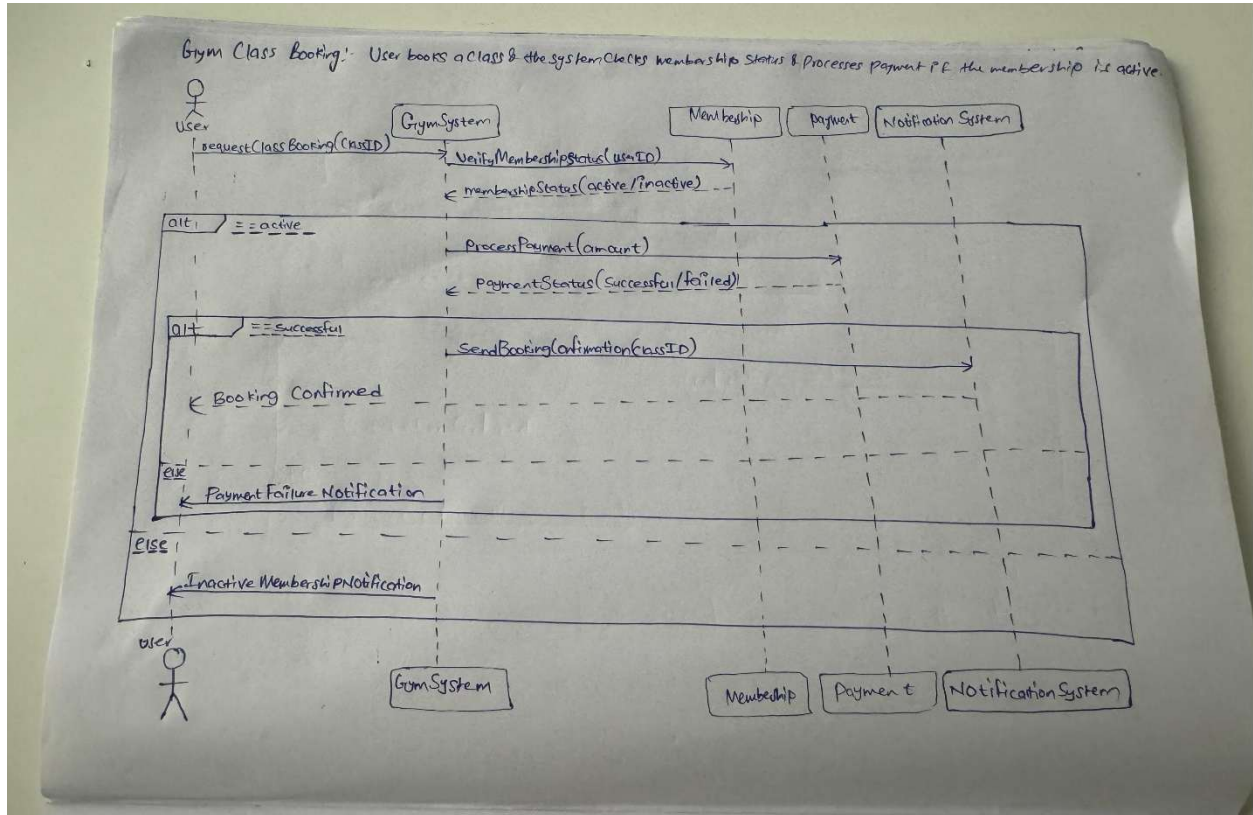 Gym Class Booking:- User books a class & the system checks membership status & processes payment if the membership is active.
User
GymSystem
Membership
Payment
Notification System
requestClassBooking(ClassID)
VerifyMembershipStatus(userID)
membershipStatus(active/inactive)
alt
==active
ProcessPayment(amount)
PaymentStatus(Successful/failed)
alt
==successful
SendBookingConfirmation(ClassID)
Booking Confirmed
else
Payment Failure Notification
else
Inactive MembershipNotification
user
GymSystem
Membership
Payment
Notification System